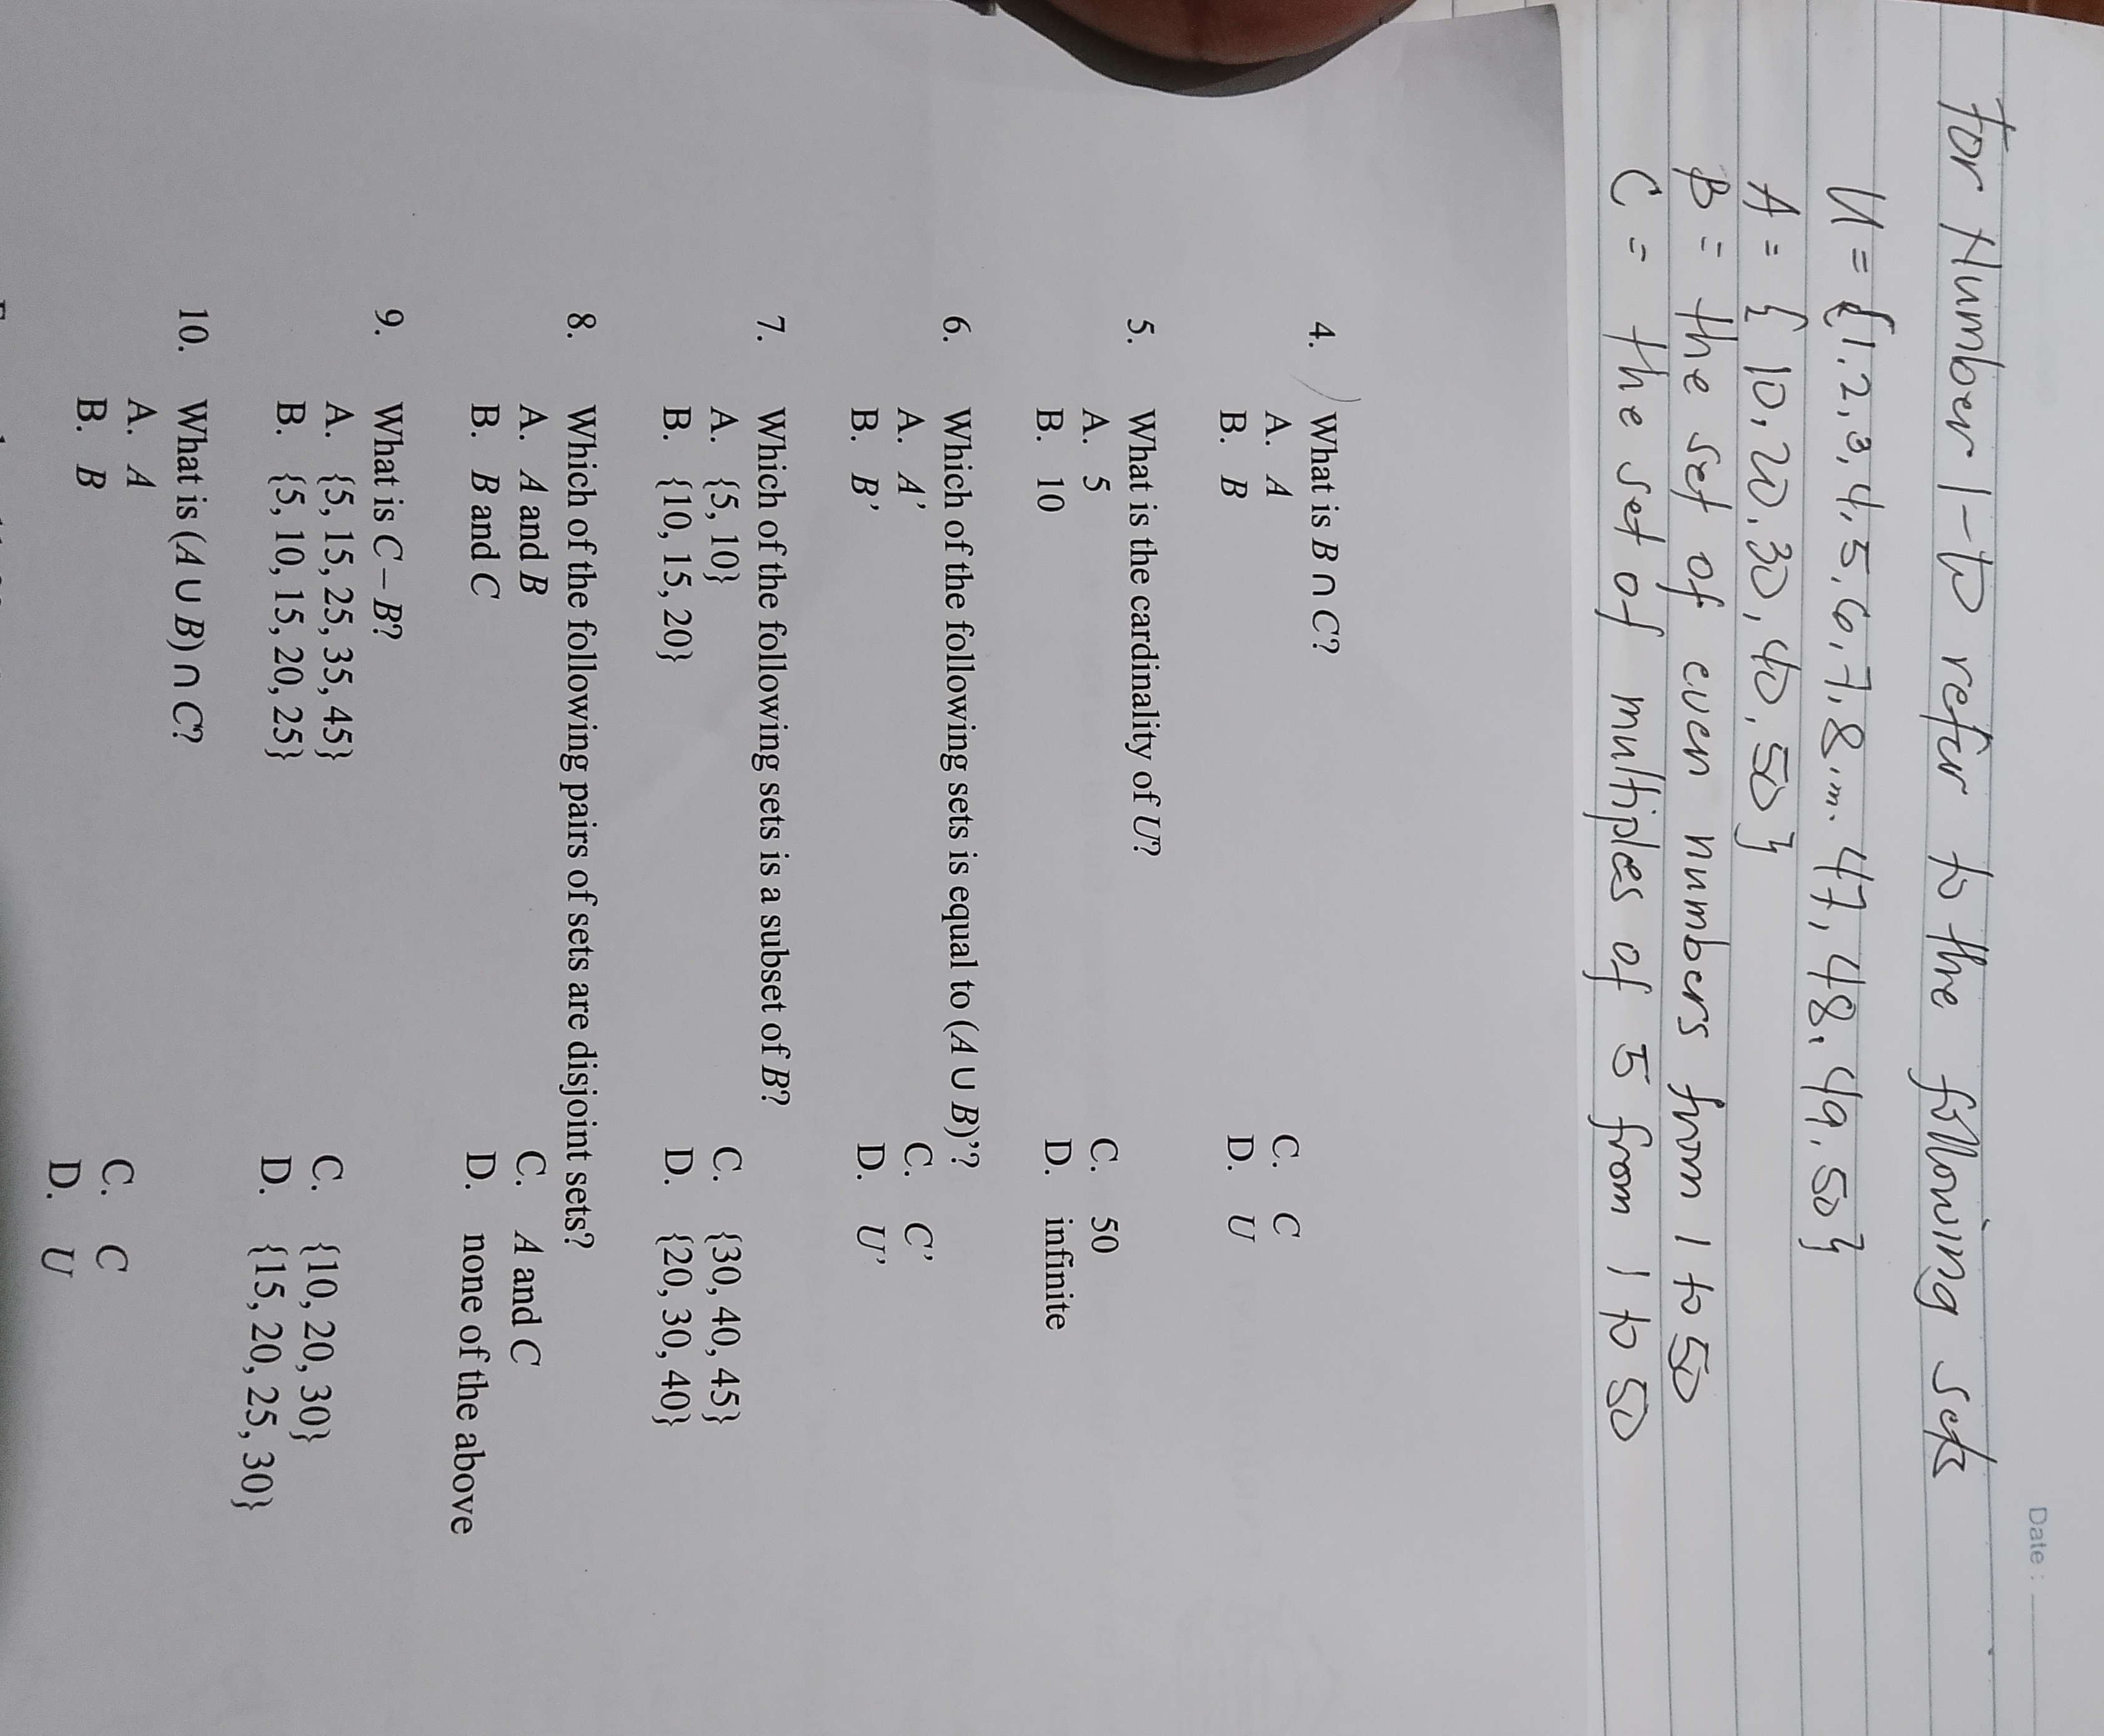 Date:
For Number 1-10 refer to the following sets
U = {1.2,3,4,5,6,7,8.... 47,48,49,50}
A = {10,20,30,40,50}
B = the set of even numbers from 1 to 50
C = the set of multiples of 5 from 1 to 50
4. What is B ∩ C?
A. A C. C
B. B D. U
5. What is the cardinality of U?
A. 5 C. 50
B. 10 D. infinite
6. Which of the following sets is equal to (A ∪ B)’?
A. A’ C. C’
B. B’ D. U’
7. Which of the following sets is a subset of B?
A. {5, 10} C. {30, 40, 45}
B. {10, 15, 20} D. {20, 30, 40}
8. Which of the following pairs of sets are disjoint sets?
A. A and B C. A and C
B. B and C D. none of the above
9. What is C – B?
A. {5, 15, 25, 35, 45} C. {10, 20, 30}
B. {5, 10, 15, 20, 25} D. {15, 20, 25, 30}
10. What is (A ∪ B) ∩ C?
A. A C. C
B. B D. U